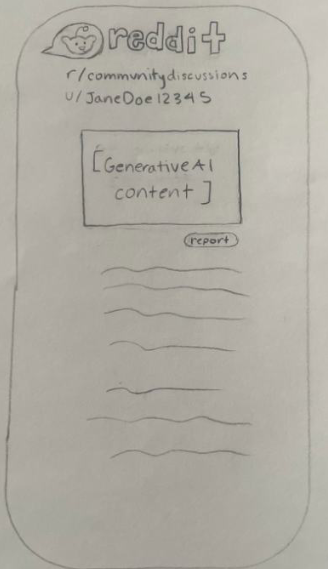 reddit
r/communitydiscussions
u/JaneDoe12345
[GenerativeAI
content]
report